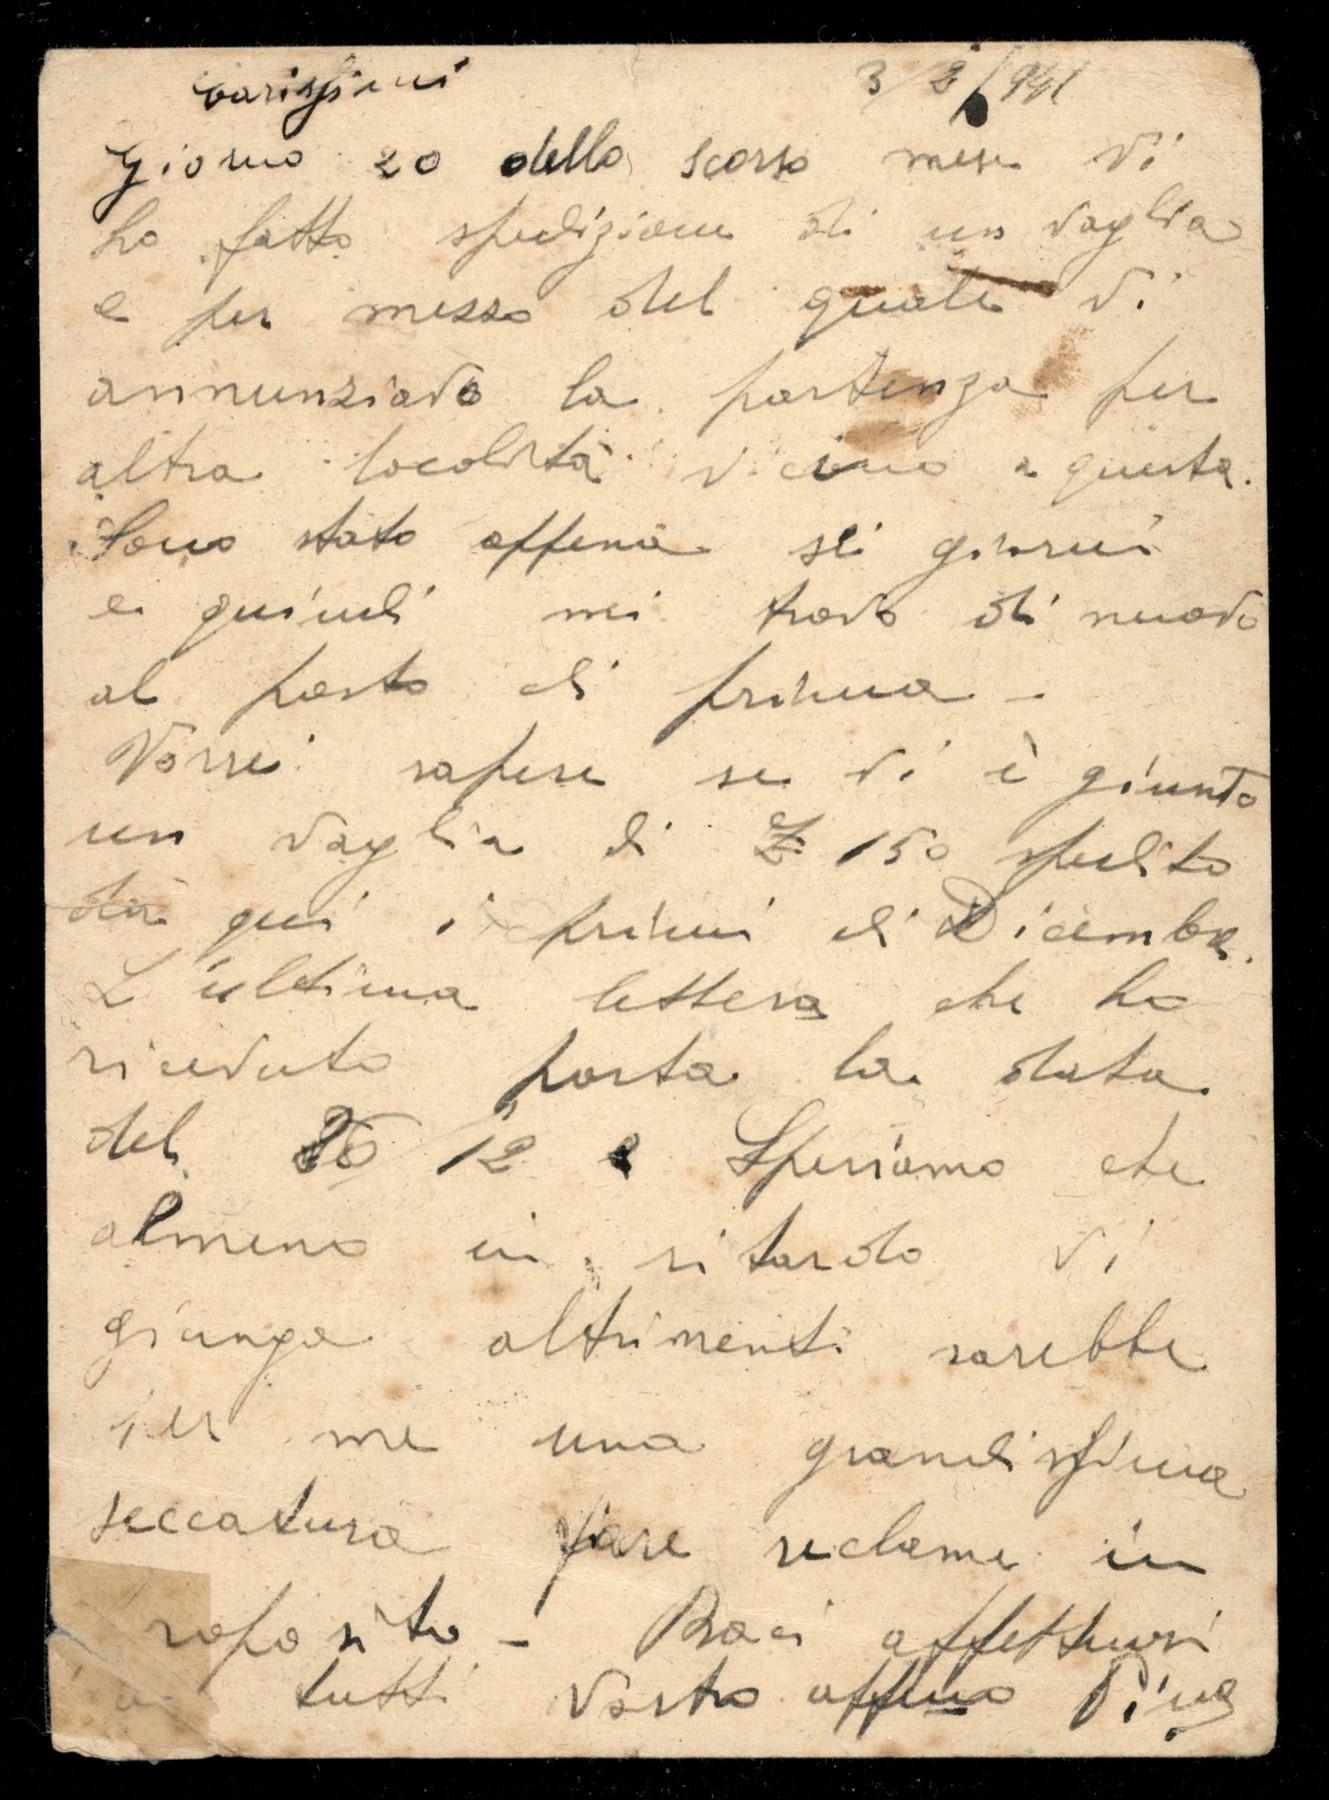 Carissimi 3/2/941
Giorno 20 dello scorso mese vi
ho fatto spedizione di un vaglia
e per messo del quale vi
annunziavo la partenza per
altra località vicino a questa.
Sono stato appena sei giorni
e quindi mi trovo di nuovo
al posto di prima -
Vorrei sapere se vi è giunto
un vaglia di £ 150 spedito
da qui i primi di Dicembre.
L'ultima lettera che ho
ricevuto porta la data
del 26/12 Speriamo che
almeno in ritardo vi
giunga altrimenti sarebbe
per me una grandissima
seccatura fare reclame in
roposito - Baci affettuosi
a tutti Vostro affmo